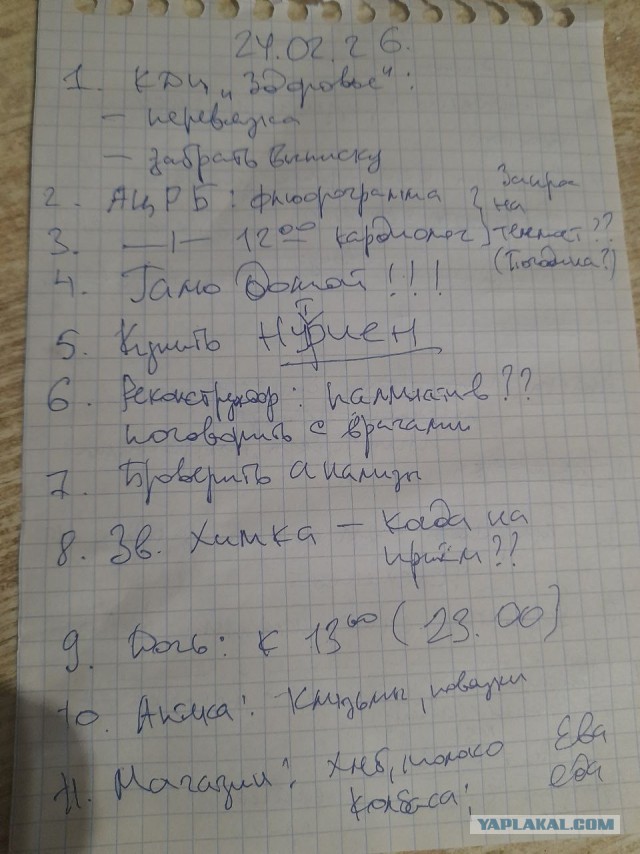 24.02.26.
1. КДЦ "Здоровье":
— перевязка
— забрать выписку
2. АЦРБ: флюорограмма
3. —|— 12⁰⁰ кардиолог
на
??
4. !!!
5. Купить Нутриен
6. Реконструктор: паллиатив??
поговорить с врачами
7. Проверить анализы
8. Зв. Химка — када на
приём??
9. Дочь: к 13⁰⁰ (23.00)
10. Аптека: Клизмы,
11. Магазин: хлеб, молоко
колбаса;
Ева
еда
YAPLAKAL.COM